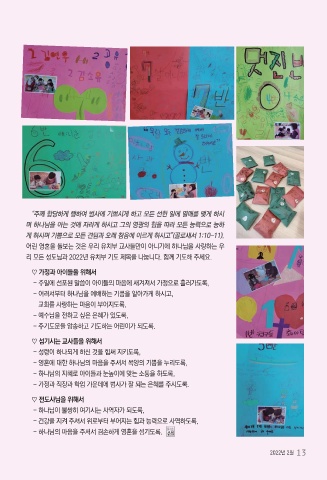 멋진 반
7
7반
6
"주께 합당하게 행하여 범사에 기쁘시게 하고 모든 선한 일에 열매를 맺게 하시
며 하나님을 아는 것에 자라게 하시고 그의 영광의 힘을 따라 모든 능력으로 능하
게 하시며 기쁨으로 모든 견딤과 오래 참음에 이르게 하시고"(골로새서 1:10-11).
어린 영혼을 돌보는 것은 우리 유치부 교사들만이 아니기에 하나님을 사랑하는 우
리 모든 성도님과 2022년 유치부 기도 제목을 나눕니다. 함께 기도해 주세요.
♡ 가정과 아이들을 위해서
- 주일에 선포된 말씀이 아이들의 마음에 새겨져서 가정으로 흘러가도록,
- 어려서부터 하나님을 예배하는 기쁨을 알아가게 하시고,
교회를 사랑하는 마음이 부어지도록,
- 예수님을 전하고 싶은 은혜가 있도록,
- 주기도문을 암송하고 기도하는 어린이가 되도록.
♡ 섬기시는 교사들을 위해서
- 성령이 하나되게 하신 것을 힘써 지키도록,
- 영혼에 대한 하나님의 마음을 주셔서 목양의 기쁨을 누리도록,
- 하나님의 지혜로 아이들과 눈높이에 맞는 소통을 하도록,
- 가정과 직장과 학업 가운데에 범사가 잘 되는 은혜를 주시도록.
♡ 전도사님을 위해서
- 하나님이 불쌍히 여기시는 사역자가 되도록,
- 건강을 지켜 주셔서 위로부터 부어지는 힘과 능력으로 사역하도록,
- 하나님의 마음을 주셔서 겸손하게 영혼을 섬기도록.
2022년 2월 13